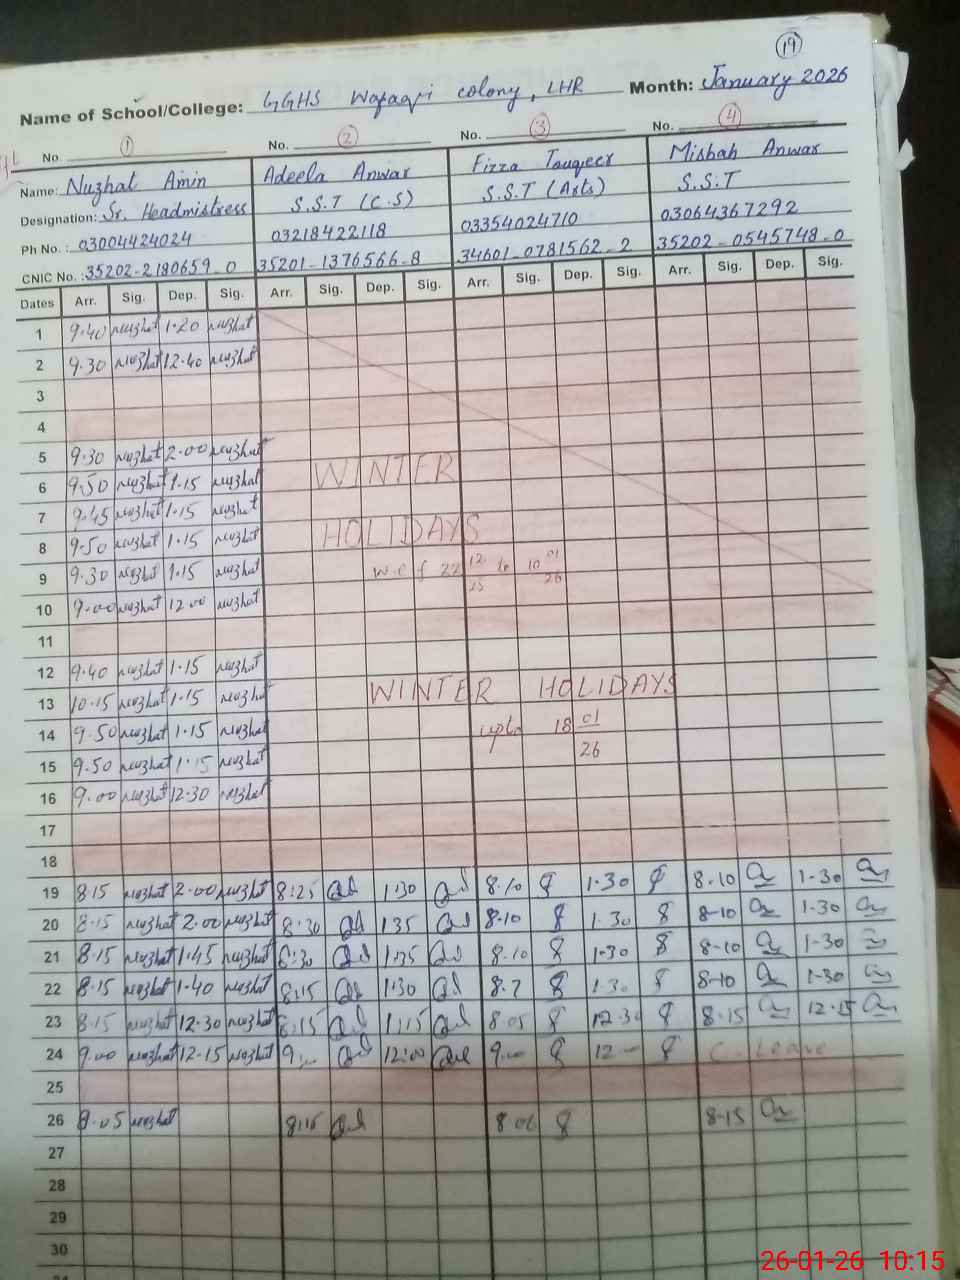 19
Name of School/College: GGHS Wafaqi colony, LHR Month: January 2026
No. 1 No. 2 No. 3 No. 4
Name: Nuzhat Amin Adeela Anwar Fizza Touqeer Misbah Anwar
Designation: Sr. Headmistress S.S.T (C.S) S.S.T (Arts) S.S.T
Ph No. : 03004424024 03218422118 03354024710 03064367292
CNIC No. : 35202-2180659-0 35201-1376566-8 34601-0781562-2 35202-0545748-0
Dates Arr. Sig. Dep. Sig. Arr. Sig. Dep. Sig. Arr. Sig. Dep. Sig. Arr. Sig. Dep. Sig.
1 9.40 nuzhat 1.20 nuzhat
2 9.30 nuzhat 12.40 nuzhat
3
4
5 9.30 nuzhat 2.00 nuzhat
6 9.50 nuzhat 1.15 nuzhat WINTER
7 9.45 nuzhat 1.15 nuzhat
8 9.50 nuzhat 1.15 nuzhat HOLIDAYS
9 9.30 nuzhat 1.15 nuzhat w.e.f 22 12 25 to 10 01 26
10 9.00 nuzhat 12.00 nuzhat
11
12 9.40 nuzhat 1.15 nuzhat
13 10.15 nuzhat 1.15 nuzhat WINTER HOLIDAYS
14 9.50 nuzhat 1.15 nuzhat upto 18 01 26
15 9.50 nuzhat 1.15 nuzhat
16 9.00 nuzhat 12.30 nuzhat
17
18
19 8.15 nuzhat 2.00 nuzhat 8:25 1:30 8.10 1.30 8.10 1.30
20 8.15 nuzhat 2.00 nuzhat 8:30 1:35 8.10 1.30 8-10 1-30
21 8.15 nuzhat 1.45 nuzhat 8:30 1:35 8.10 1.30 8-10 1-30
22 8.15 nuzhat 1.40 nuzhat 8:15 1:30 8.7 1.30 8-10 1-30
23 8.15 nuzhat 12.30 nuzhat 8:15 1:15 8.05 12.30 8.15 12.15
24 9.00 nuzhat 12.15 nuzhat 9: 12:00 9. 12 C. Leave
25
26 8.05 nuzhat 8:15 8.06 8-15
27
28
29
30
26-01-26 10:15